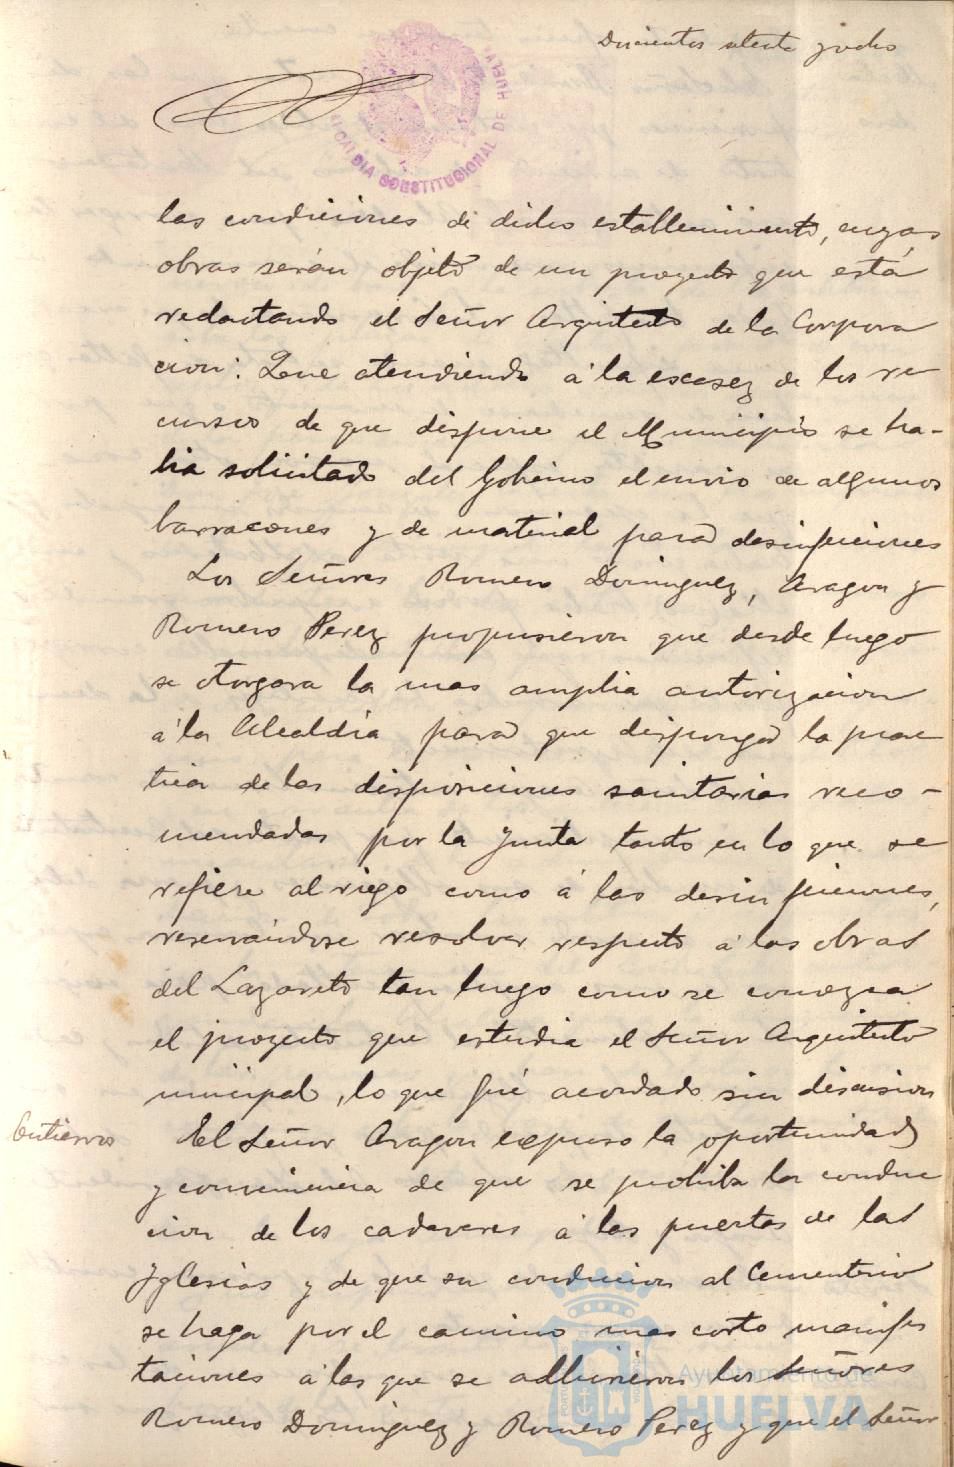 Docientos setenta y ocho
ALCALDIA CONSTITUCIONAL DE HUELVA
las condiciones de dicho establecimiento, cuyas
obras serán objeto de un proyecto que está
redactando el Señor Arquitecto de la Corpora
cion: Que atendiendo á la escasez de los re
cursos de que dispone el Municipio se ha-
bia solicitado del Gobierno el envio de algunos
barracones y de material para desinfecciones
Los Señores Romero Dominguez, Aragon y
Romero Perez propusieron que desde luego
se otorgara la mas amplia autorizacion
á la Alcaldía para que disponga la prac
tica de las disposiciones sanitarias reco-
mendadas por la Junta tanto en lo que se
refiere al riego como á las desinfecciones,
reservándose resolver respecto á las obras
del Lazareto tan luego como se conozca
el proyecto que estudia el Señor Arquitecto
municipal, lo que fué acordado sin discusion
Entierros
El Señor Aragon expuso la oportunidad
y conveniencia de que se prohiba la conduc
cion de los cadaveres á las puertas de las
Yglesias y de que su conduccion al Cementerio
se haga por el camino mas corto manifes
taciones á las que se adhirieron los Señores
Romero Dominguez y Romero Perez y que el Señor
Ayuntamiento de
HUELVA